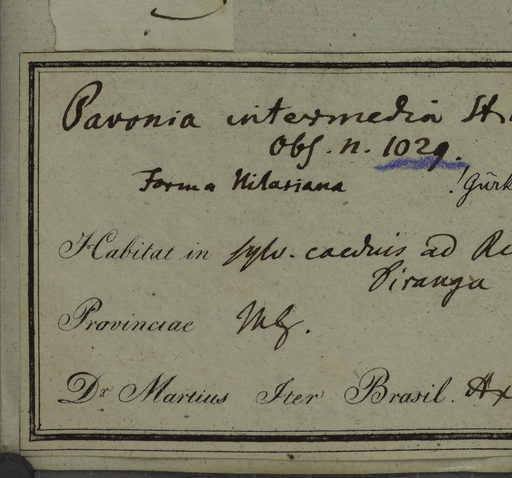 Pavonia intermedia St
Obs. n. 1029.
Forma Hilariana ! Gürk
Habitat in sylv. caeduis ad Re
Piranga
Provinciae MG.
Dr Martius Iter Brasil.